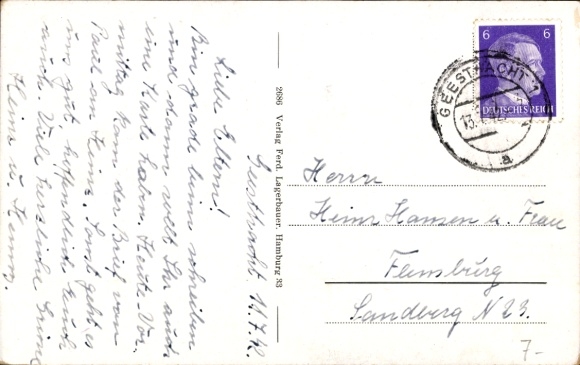 Geesthacht 11.7.42.
Liebe Eltern!
Bin grade beim schreiben
und dann wollt Ihr auch
eine Karte haben. Heute Vor-
mittag kam der Brief von
Paul an Heinz. Sonst geht es
uns gut, hoffentlich Euch
auch. Viele herzliche Grüße
Heinz u.
2686 Verlag Ferd. Lagerbauer, Hamburg 33
6 6
DEUTSCHES REICH
GEESTHACHT 1
a
Herrn
Heinr Hansen u. Frau
Flensburg
Sandberg N 23.
7-